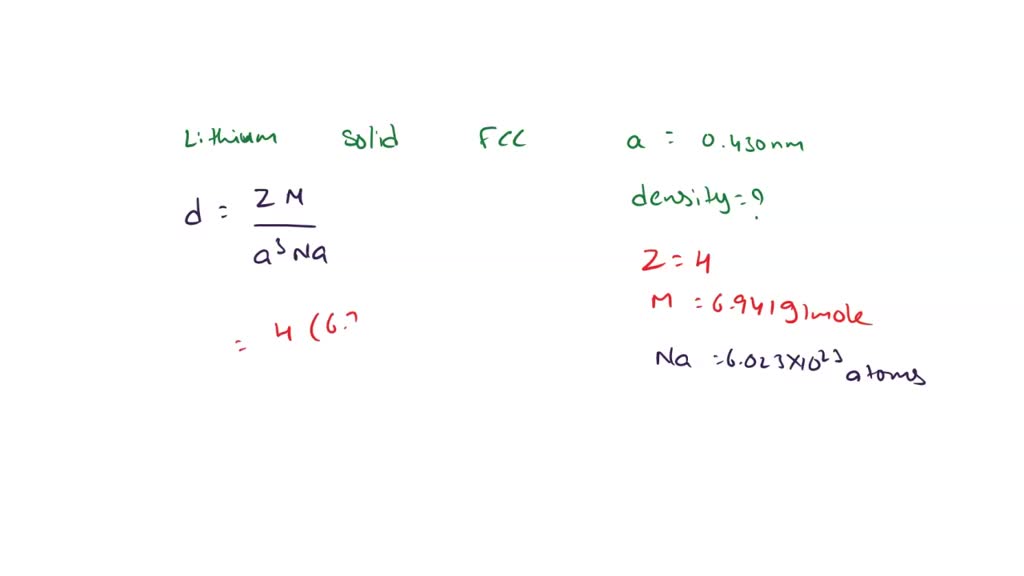 Lithium solid FCC a = 0.430nm
d = ZM / a³Na
density = ?
Z = 4
M = 6.941g/mole
= 4 (6.9
Na = 6.023×10²³ atoms